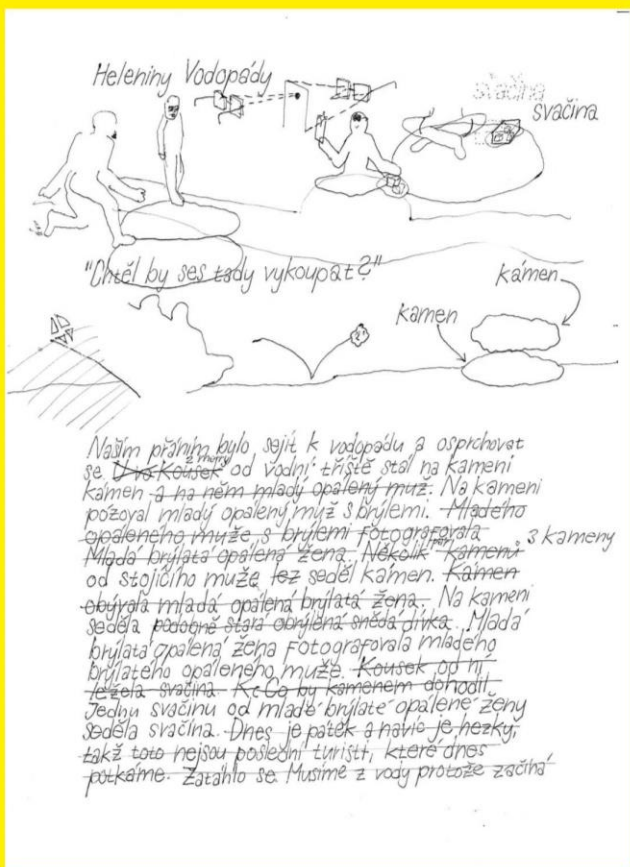 Heleniny Vodopády
svačina
svačina
"Chtěl by ses tady vykoupat?"
kámen
kamen
Naším přáním bylo sejít k vodopádu a osprchovat
se Dva Kousek 2 metry od vodní tříště stál na kameni
kámen a na něm mladý opálený muž. Na kameni
pózoval mladý opálený muž s brýlemi. Mladého
opáleného muže s brýlemi fotografovala
Mladá brýlatá opálená žena. Několik kamenů 3 kameny
od stojícího muže seděl kámen. Kámen
obývala mladá opálená brýlatá žena. Na kameni
seděla podobně stará obrýlená snědá dívka. Mladá
brýlatá opálená žena fotografovala mladého
brýlateho opáleného muže. Kousek od ní
ležela svačina. Co by kamenem dohodil.
Jednu svačinu od mladé brýlaté opálené ženy
seděla svačina. Dnes je pátek a navíc je hezky,
takž toto nejsou poslední turisti, které dnes
potkáme. Zatáhlo se. Musíme z vody protože začíná